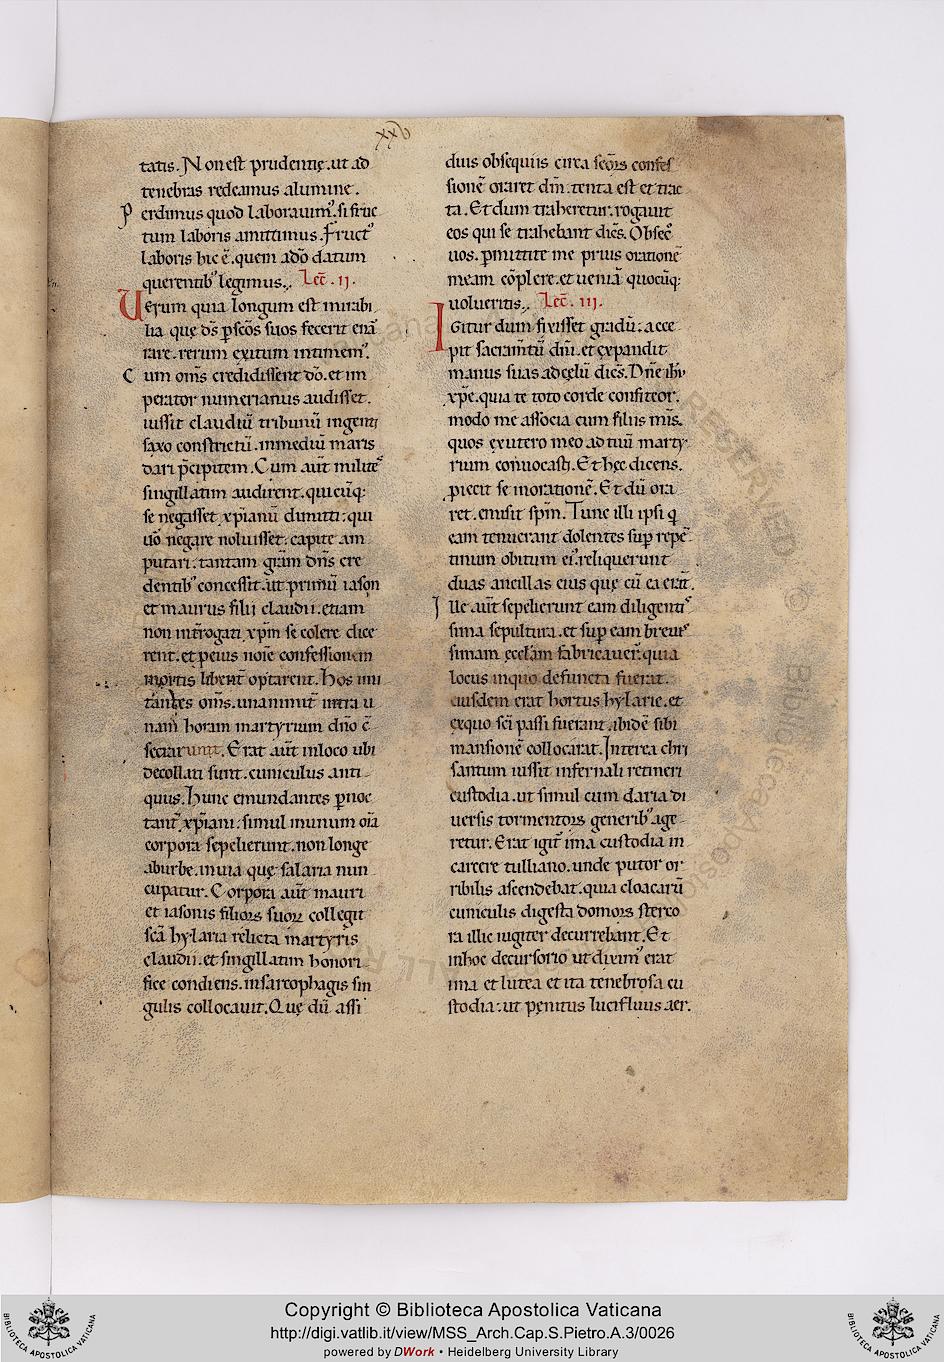 xxv
tatis. Non est prudentię. ut ad
tenebras redeamus a lumine.
Perdimus quod laborauim᷒. si fruc
tum laboris amittimus. Fruct᷒
laboris hic ē. quem a dō datum
querentib᷒ legimus. Lec̄. II.
Uerum quia longum est mirabi
lia quę d̄s p scōs suos fecerit enar̄
rare. rerum exitum intimem᷒.
Cum om̄s credidissent dō. et im
perator numerianus audisset.
iussit claudiū tribunū ingenti
saxo constrictū. in mediū maris
dari p̄cipitem. Cum aūt milites
singillatim audirent. quicūq:
se negasset xp̄ianū dimitti: qui
uō negare noluisset. capite am
putari. tantam grām dn̄s cre
dentib᷒ concessit. ut primū iason
et maurus filii claudii. etiam
non int̄rogati xp̄m se colere dice
rent. et p eius noīe confessionem
mortis libent̄ optarent. Hos imi
tantes om̄s. unanimit̄ intra u
nam horam martyrium dn̄o ē
secrarunt. Erat aūt in loco ubi
decollati sunt. cuniculus anti
quus. Hunc emundantes p noc
tant̄ xp̄iani. simul in unum oīa
corpora sepelierunt. non longe
ab urbe. in uia quę salaria nun
cupatur. Corpora aūt mauri
et iasonis filioꝝ suoꝝ collegit
scā hylaria relicta martyris
claudii. et singillatim honori
fice condiens. in sarcophagis sin
gulis collocauit. Quę dū assi
duis obsequiis circa scōꝝ confes
sionē oraret dn̄m. tenta est et trac
ta. Et dum traheretur. rogauit
eos qui se trahebant dicēs. Obsec᷒
uos. pmittite me prius orationē
meam cōplere. et ueniā quocūq:
uolueritis. Lec̄. III.
Igitur dum fixisset gradū. acce
pit sacramt̄ū dn̄i. et expandit
manus suas ad cęlū dicēs. Dn̄e ihū
xp̄e. quia te toto corde confiteor.
modo me associa cum filiis mīs.
quos ex utero meo ad tuū marty
rium conuocasti. Et hęc dicens.
piecit se in orationē. Et dū ora
ret. emisit sp̄m. Tunc illi ipsi q
eam tenuerant dolentes sup repē
tinum obitum ei᷒. reliquerunt
duas ancillas eius quę cū ea erāt.
Ille aūt sepelierunt eam diligenti
sima sepultura. et sup eam breuis
simam ęcclām fabricauer̄. quia
locus in quo defuncta fuerat.
eiusdem erat hortus hylarię. et
ex quo scī passi fuerant. ibidē sibi
mansionē collocarat. Interea chri
santum iussit infernali retineri
custodia. ut simul cum daria di
uersis tormentoꝝ generib᷒ age
retur. Erat igit̄ ima custodia in
carcere tulliano. unde putor or
ribilis ascendebat. quia cloacarū
cuniculis digesta domoꝝ sterco
ra illic iugiter decurrebant. Et
in hoc decursorio ut dixim᷒ erat
ima et lutea et ita tenebrosa cu
stodia. ut pęnitus lucifluus aer.
Copyright © Biblioteca Apostolica Vaticana
http://digi.vatlib.it/view/MSS_Arch.Cap.S.Pietro.A.3/0026
powered by DWork • Heidelberg University Library
BIBLIOTECA APOSTOLICA VATICANA
BIBLIOTECA APOSTOLICA VATICANA